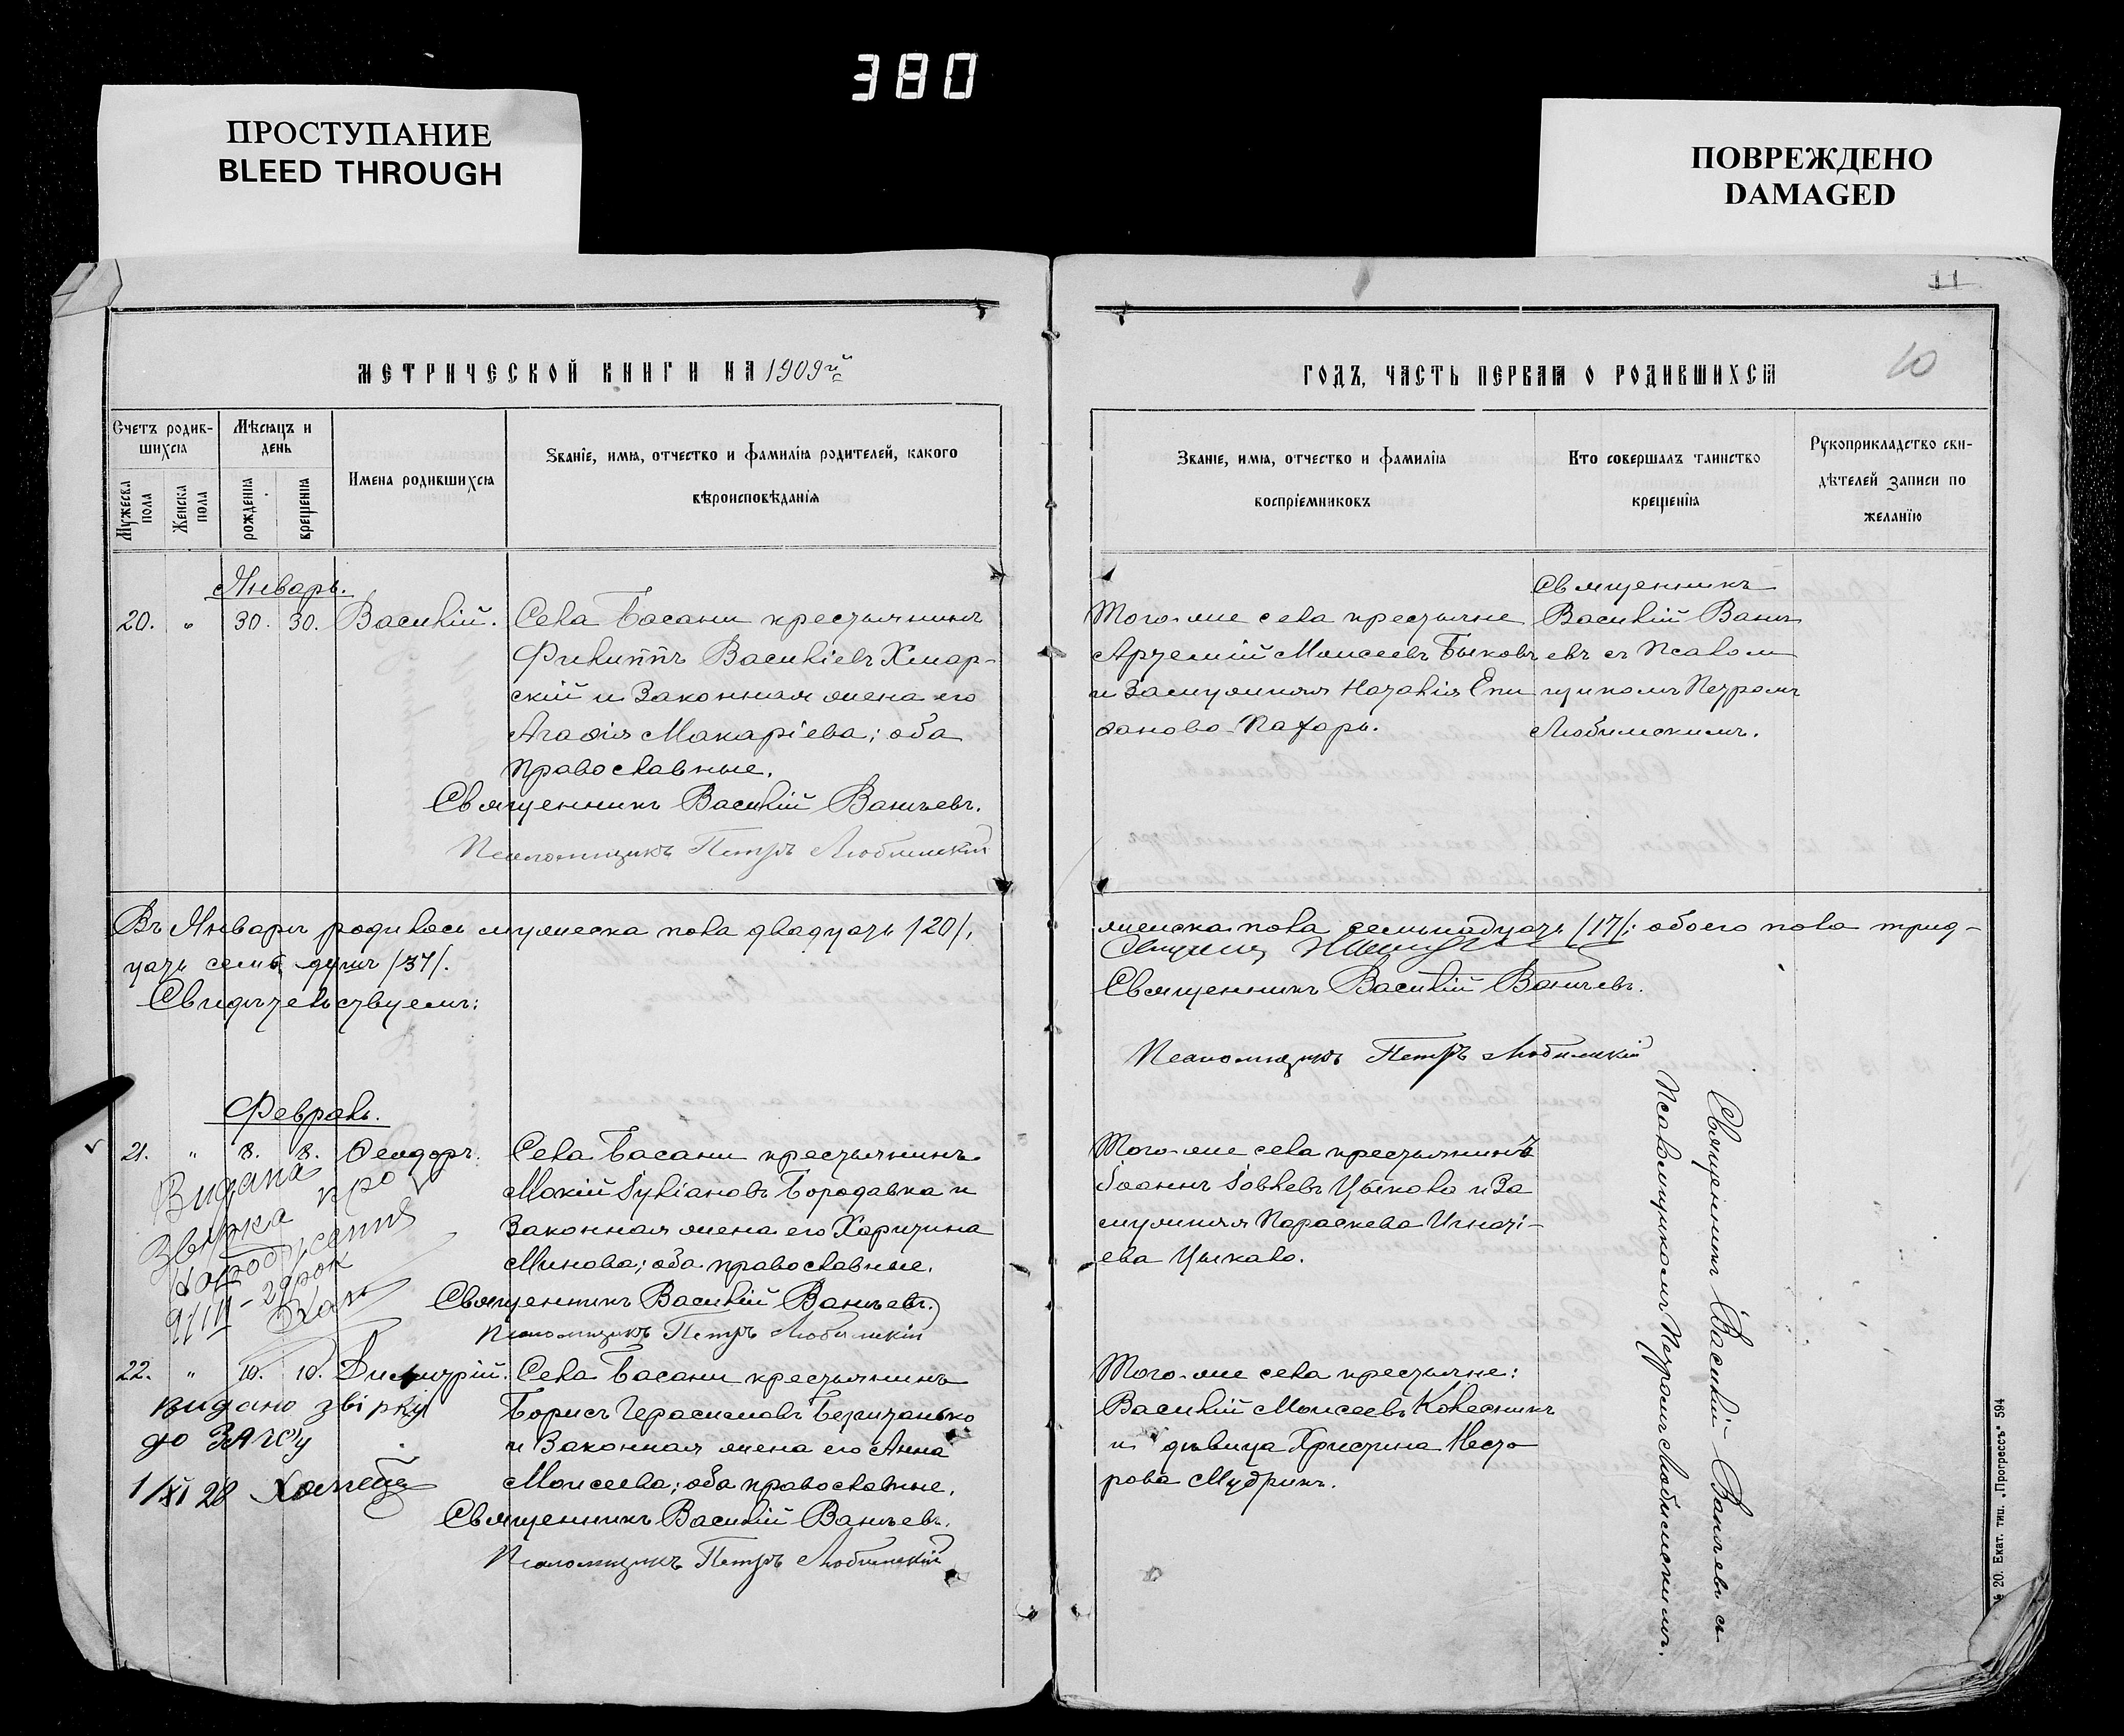 380
ПРОСТУПАНИЕ
BLEED THROUGH
ПОВРЕЖДЕНО
DAMAGED
11
МЕТРИЧЕСКОЙ КНИГИ НА 1909й
Счетъ родив-
шихся
Мѣсяцъ и
день
Мужеска
пола
Женска
пола
рожденія
крещенія
Имена родившихся
Званіе, имя, отчество и фамилія родителей, какого
вѣроисповѣданія
Январь.
20. " 30. 30. Василій. Села Басани крестьянинъ
Филиппъ Василіевъ Хмар-
скій и законная жена его
Агаѳія Макаріева; оба
православные.
Священникъ Василій Ваньевъ.
Псаломщикъ Петръ Любимскій
Въ Январѣ родилось мужеска пола двадцать /20/,
цать семь душъ /37/.
Свидѣтельствуемъ:
Февраль.
21. " 8. 8. Ѳеодоръ. Села Басани крестьянинъ
Мокій Іуліановъ Бородавка и
законная жена его Харитина
Минова; оба православные.
Священникъ Василій Ваньевъ.
Псаломщикъ Петръ Любимскій
Видана
звірка про
народження
22. " 10. 10. Димитрій. Села Басани крестьянинъ
Борисъ Герасимовъ
и законная жена его Анна
Моисеева; оба православные.
Священникъ Василій Ваньевъ.
Псаломщикъ Петръ Любимскій
видано звірку
до ЗАГСу
1/XI 28
ГОДЪ, ЧАСТЬ ПЕРВАЯ О РОДИВШИХСЯ
10
Званіе, имя, отчество и фамилія
воспріемниковъ
Кто совершалъ таинство
крещенія
Рукоприкладство сви-
дѣтелей записи по
желанію
Того-же села крестьяне
Артемій Моисеевъ Быковъ
и замужняя Наталія Епи
фанова Пахарь.
Священникъ
Василій Вань
евъ съ Псалом
щикомъ Петромъ
Любимскимъ.
женска пола семьнадцать /17/; обоего пола трид-
Священникъ Василій Ваньевъ.
Псаломщикъ Петръ Любимскій
Того-же села крестьянинъ
Іоаннъ Іовлевъ Цыкало и за
мужняя Параскева Игнаті-
ева Цыкало.
Того-же села крестьяне:
Василій Моисеевъ Колесникъ
и дѣвица Христина Несто
рова Мудрикъ.
Священникъ Василій Ваньевъ съ
Псаломщикомъ Петромъ Любимскимъ.
№ 20. Екат. тип. „Прогрессъ" 594